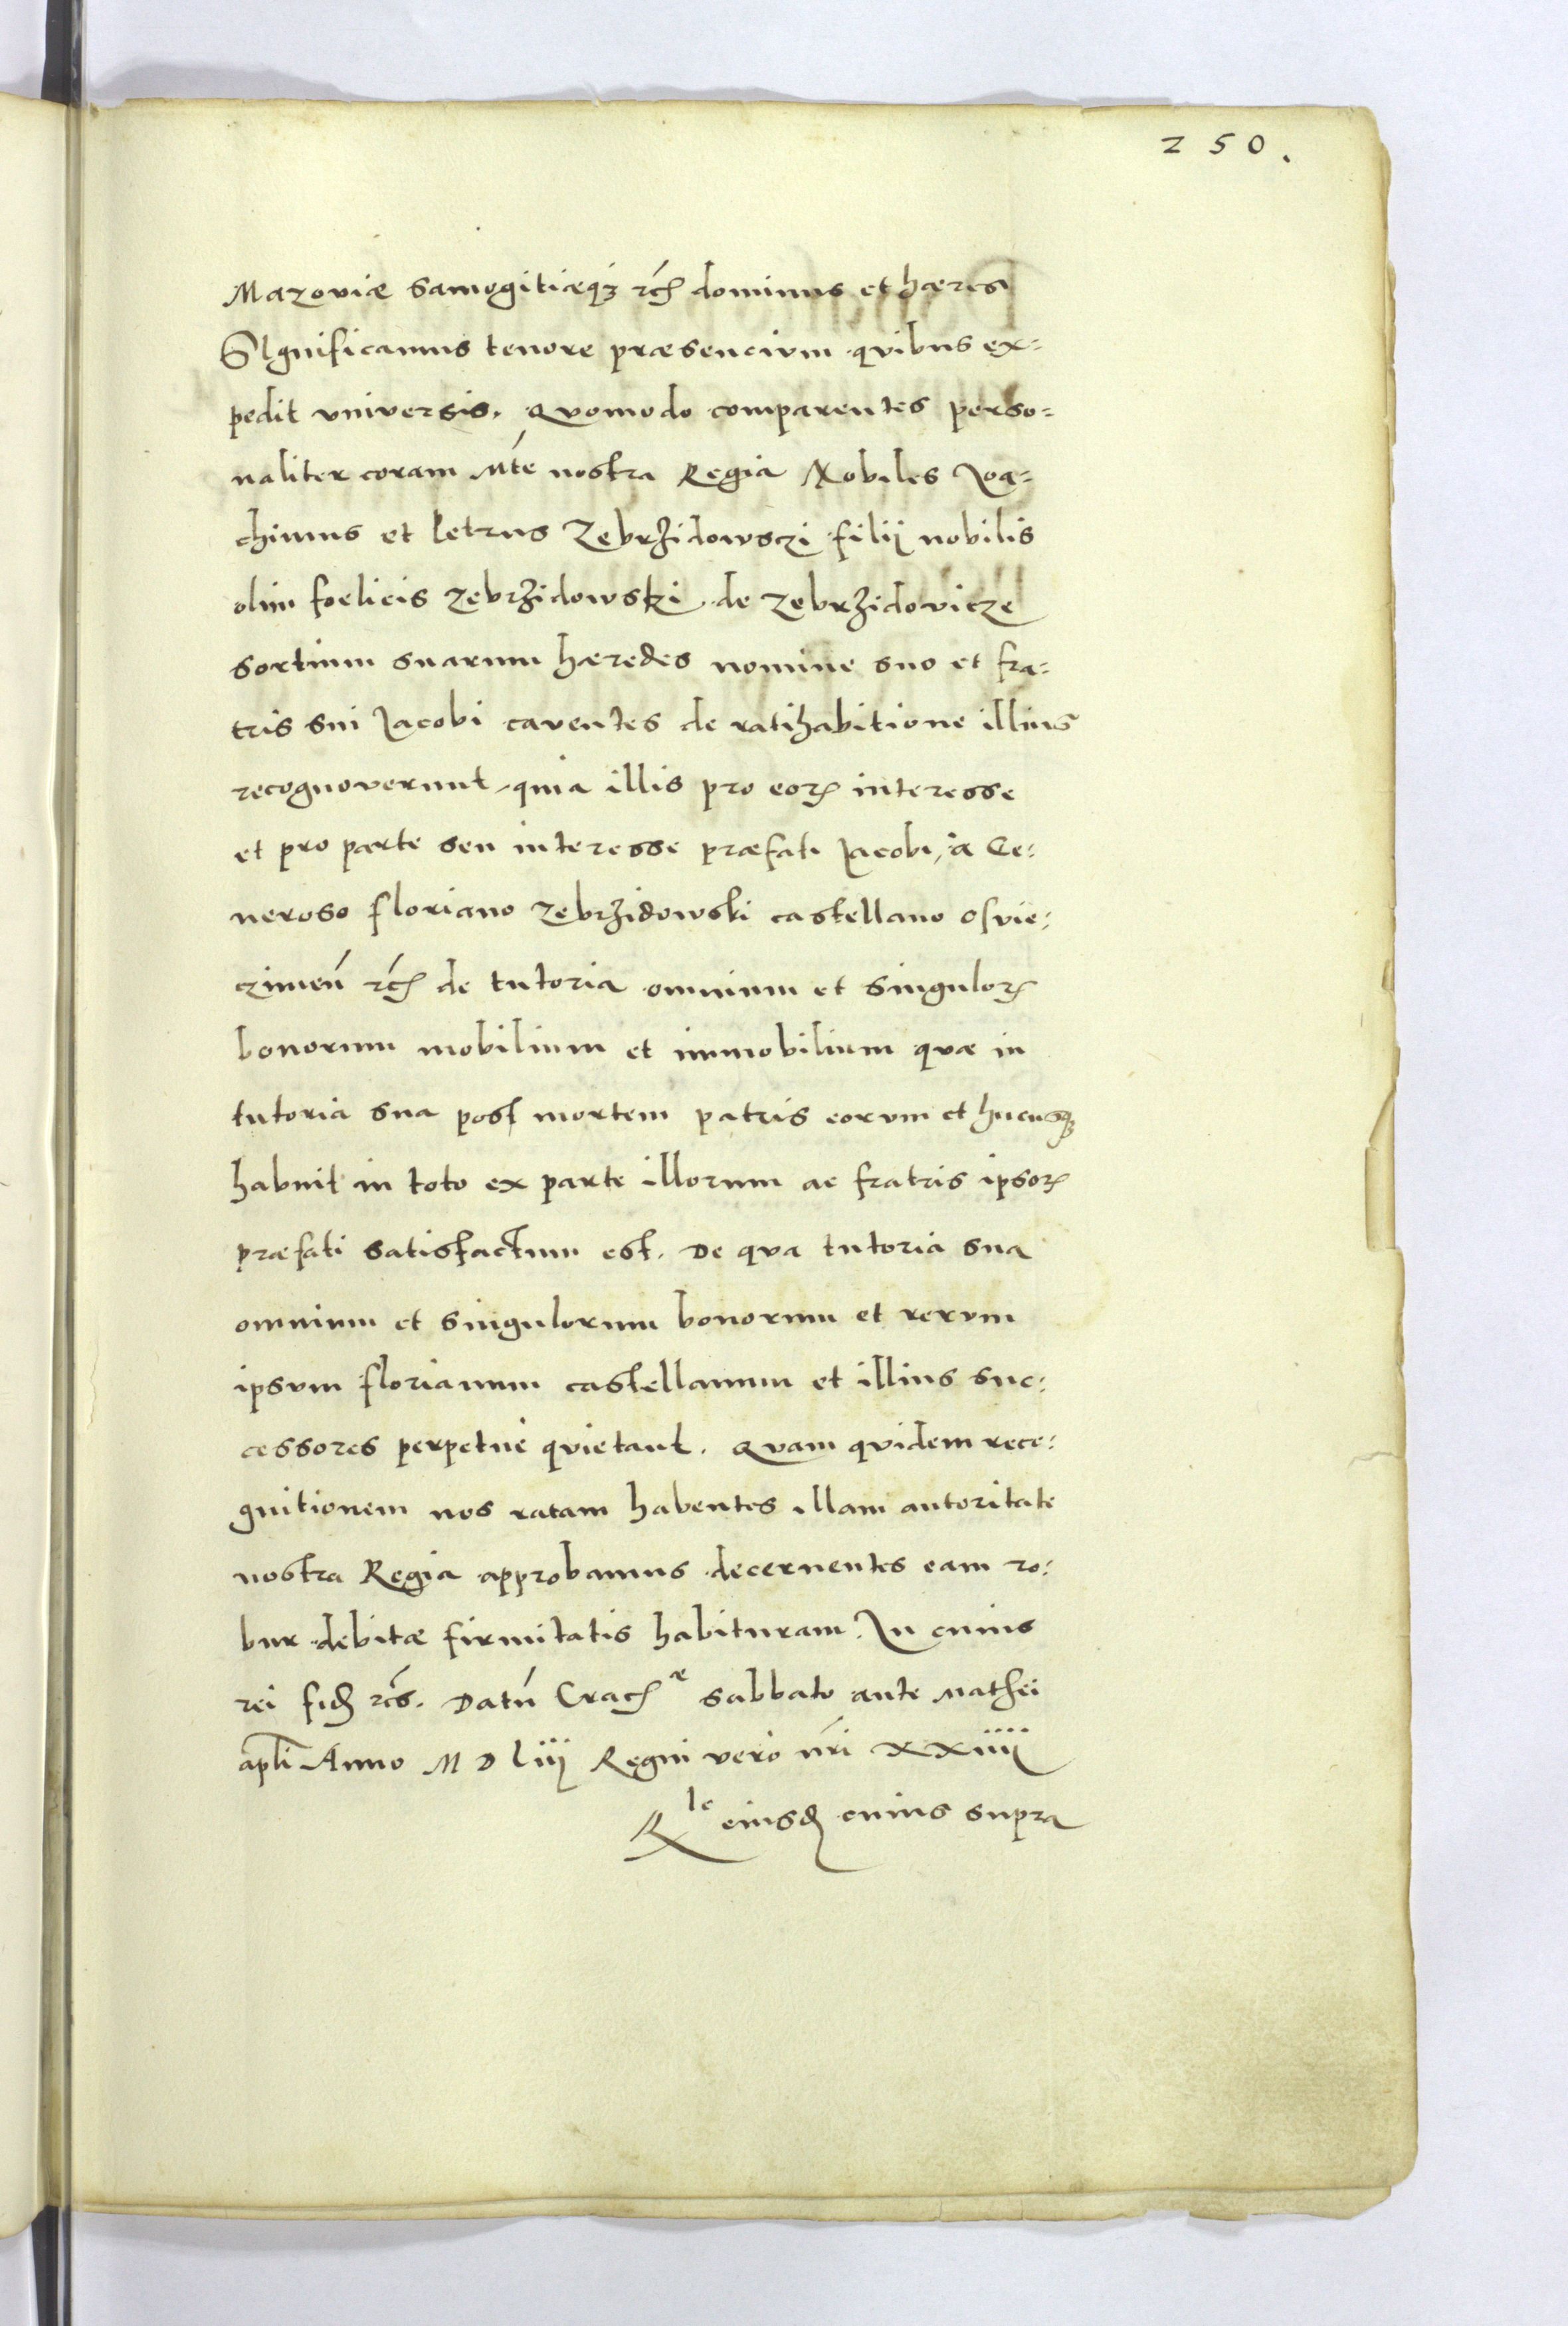 250.
Mazoviæ Samogitiæq₃ rc̃ dominus et hæres
SIgnificamus tenore præsencivm qvibus ex=
pedit vniversis. Qvomodo comparentes perso=
naliter coram Mte nostra Regia Nobiles Ioa=
chimus et Petrus Zebrzidowsczi filij nobilis
olim foelicis Zebrzidowski de Zebrzidovicze
sortium suarum hæredes nomine suo et fra=
tris sui Iacobi caventes de ratihabitione illius
recognoverunt, quia illis pro eorꝝ interesse
et pro parte seu interesse præfati Iacobi, à Ge=
neroso floriano Zebrzidowski castellano Osvie=
czimeñ rc̃ de tutoria omnium et singulorꝝ
bonorum mobilium et immobilium qvæ in
tutoria sua post mortem patris eorvm et hucusq₃
habuit in toto ex parte illorum ac fratris ipsorꝝ
præfati satisfactum est. De qva tutoria sua
omnium et singulorum bonorum et rervm
ipsvm florianum castellanum et illius suc=
cessores perpetuè qvietant. Qvam qvidem reco=
gnitionem nos ratam habentes illam autoritate
nostra Regia approbamus decernentes eam ro=
bur debitæ firmitatis habituram. In cuius
rei fid rc̃s. Datũ Crac sabbato ante Mathei
apli Anno M D liij Regni verò nri XXiiij
Rle eiusd cuius supra